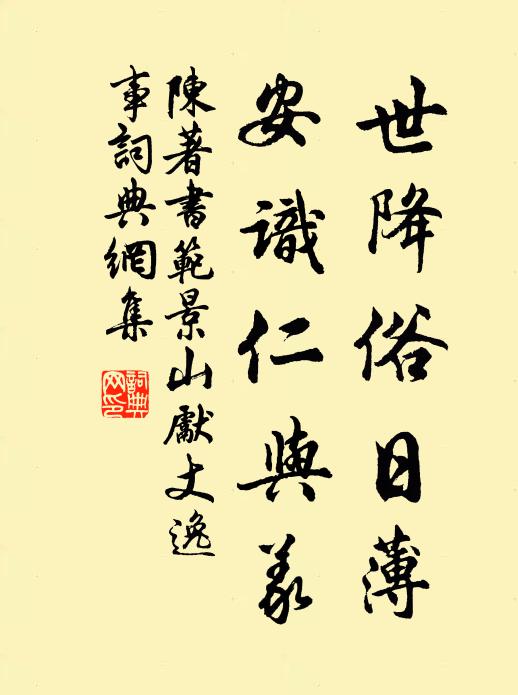 世降俗日薄
安識仁與義
陳著書範景山獻丈逸
事詞典網集
詞典網印